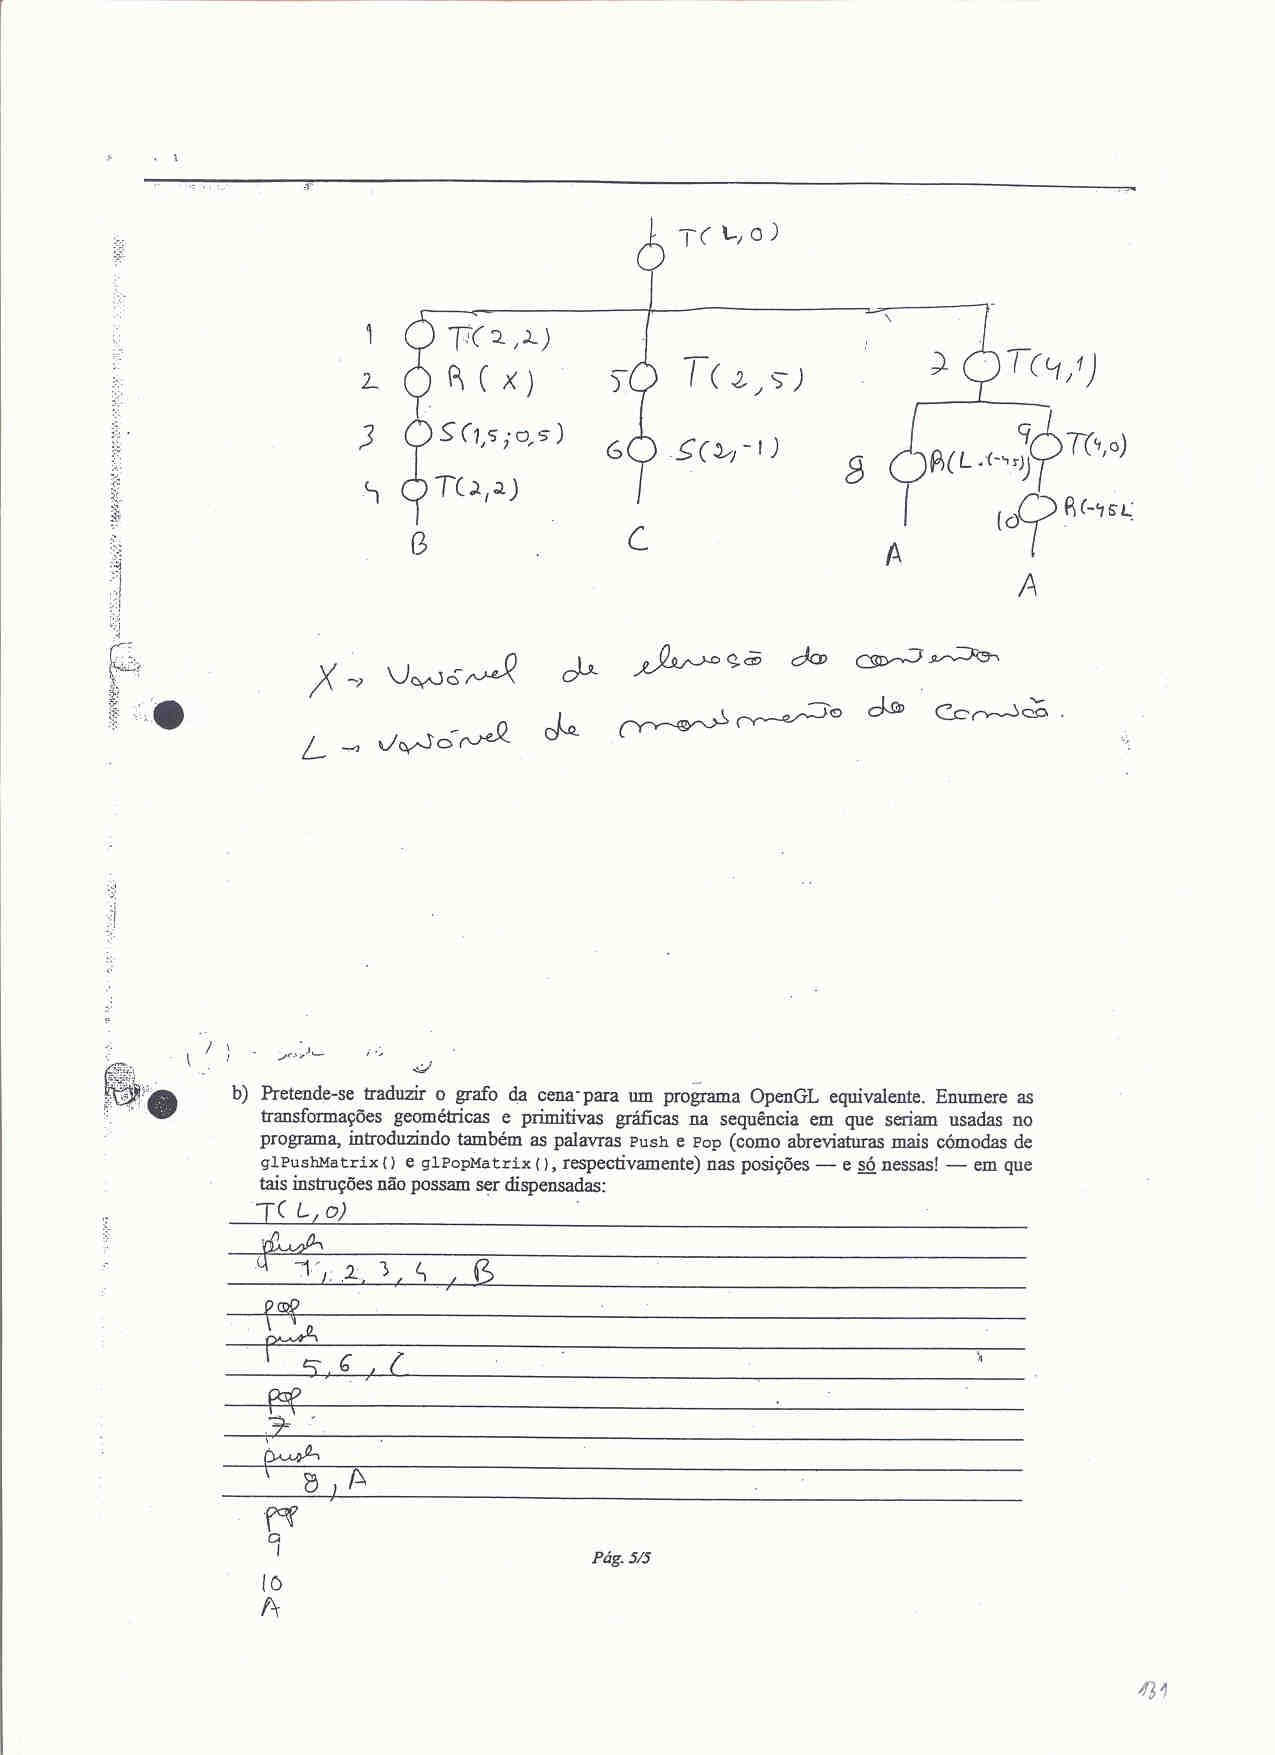 T( L, 0)
1 T( 2 , 2 )
2 R ( X )
3 S(1,5 ; 0,5)
4 T(2,2)
B
5 T( 2 , 5 )
6 S(2, -1)
C
7 T(4,1)
8 R(L.(-45))
A
9 T(4,0)
10 R(-45L
A
X → Variável de elevação do contentor
L → variável de movimento do camião.
b) Pretende-se traduzir o grafo da cena para um programa OpenGL equivalente. Enumere as
transformações geométricas e primitivas gráficas na sequência em que seriam usadas no
programa, introduzindo também as palavras Push e Pop (como abreviaturas mais cómodas de
glPushMatrix() e glPopMatrix(), respectivamente) nas posições — e só nessas! — em que
tais instruções não possam ser dispensadas:
T( L, 0)
push
1, 2, 3, 4, B
pop
push
5, 6, C
pop
7
push
8, A
pop
9
10
A
Pág. 5/5
131